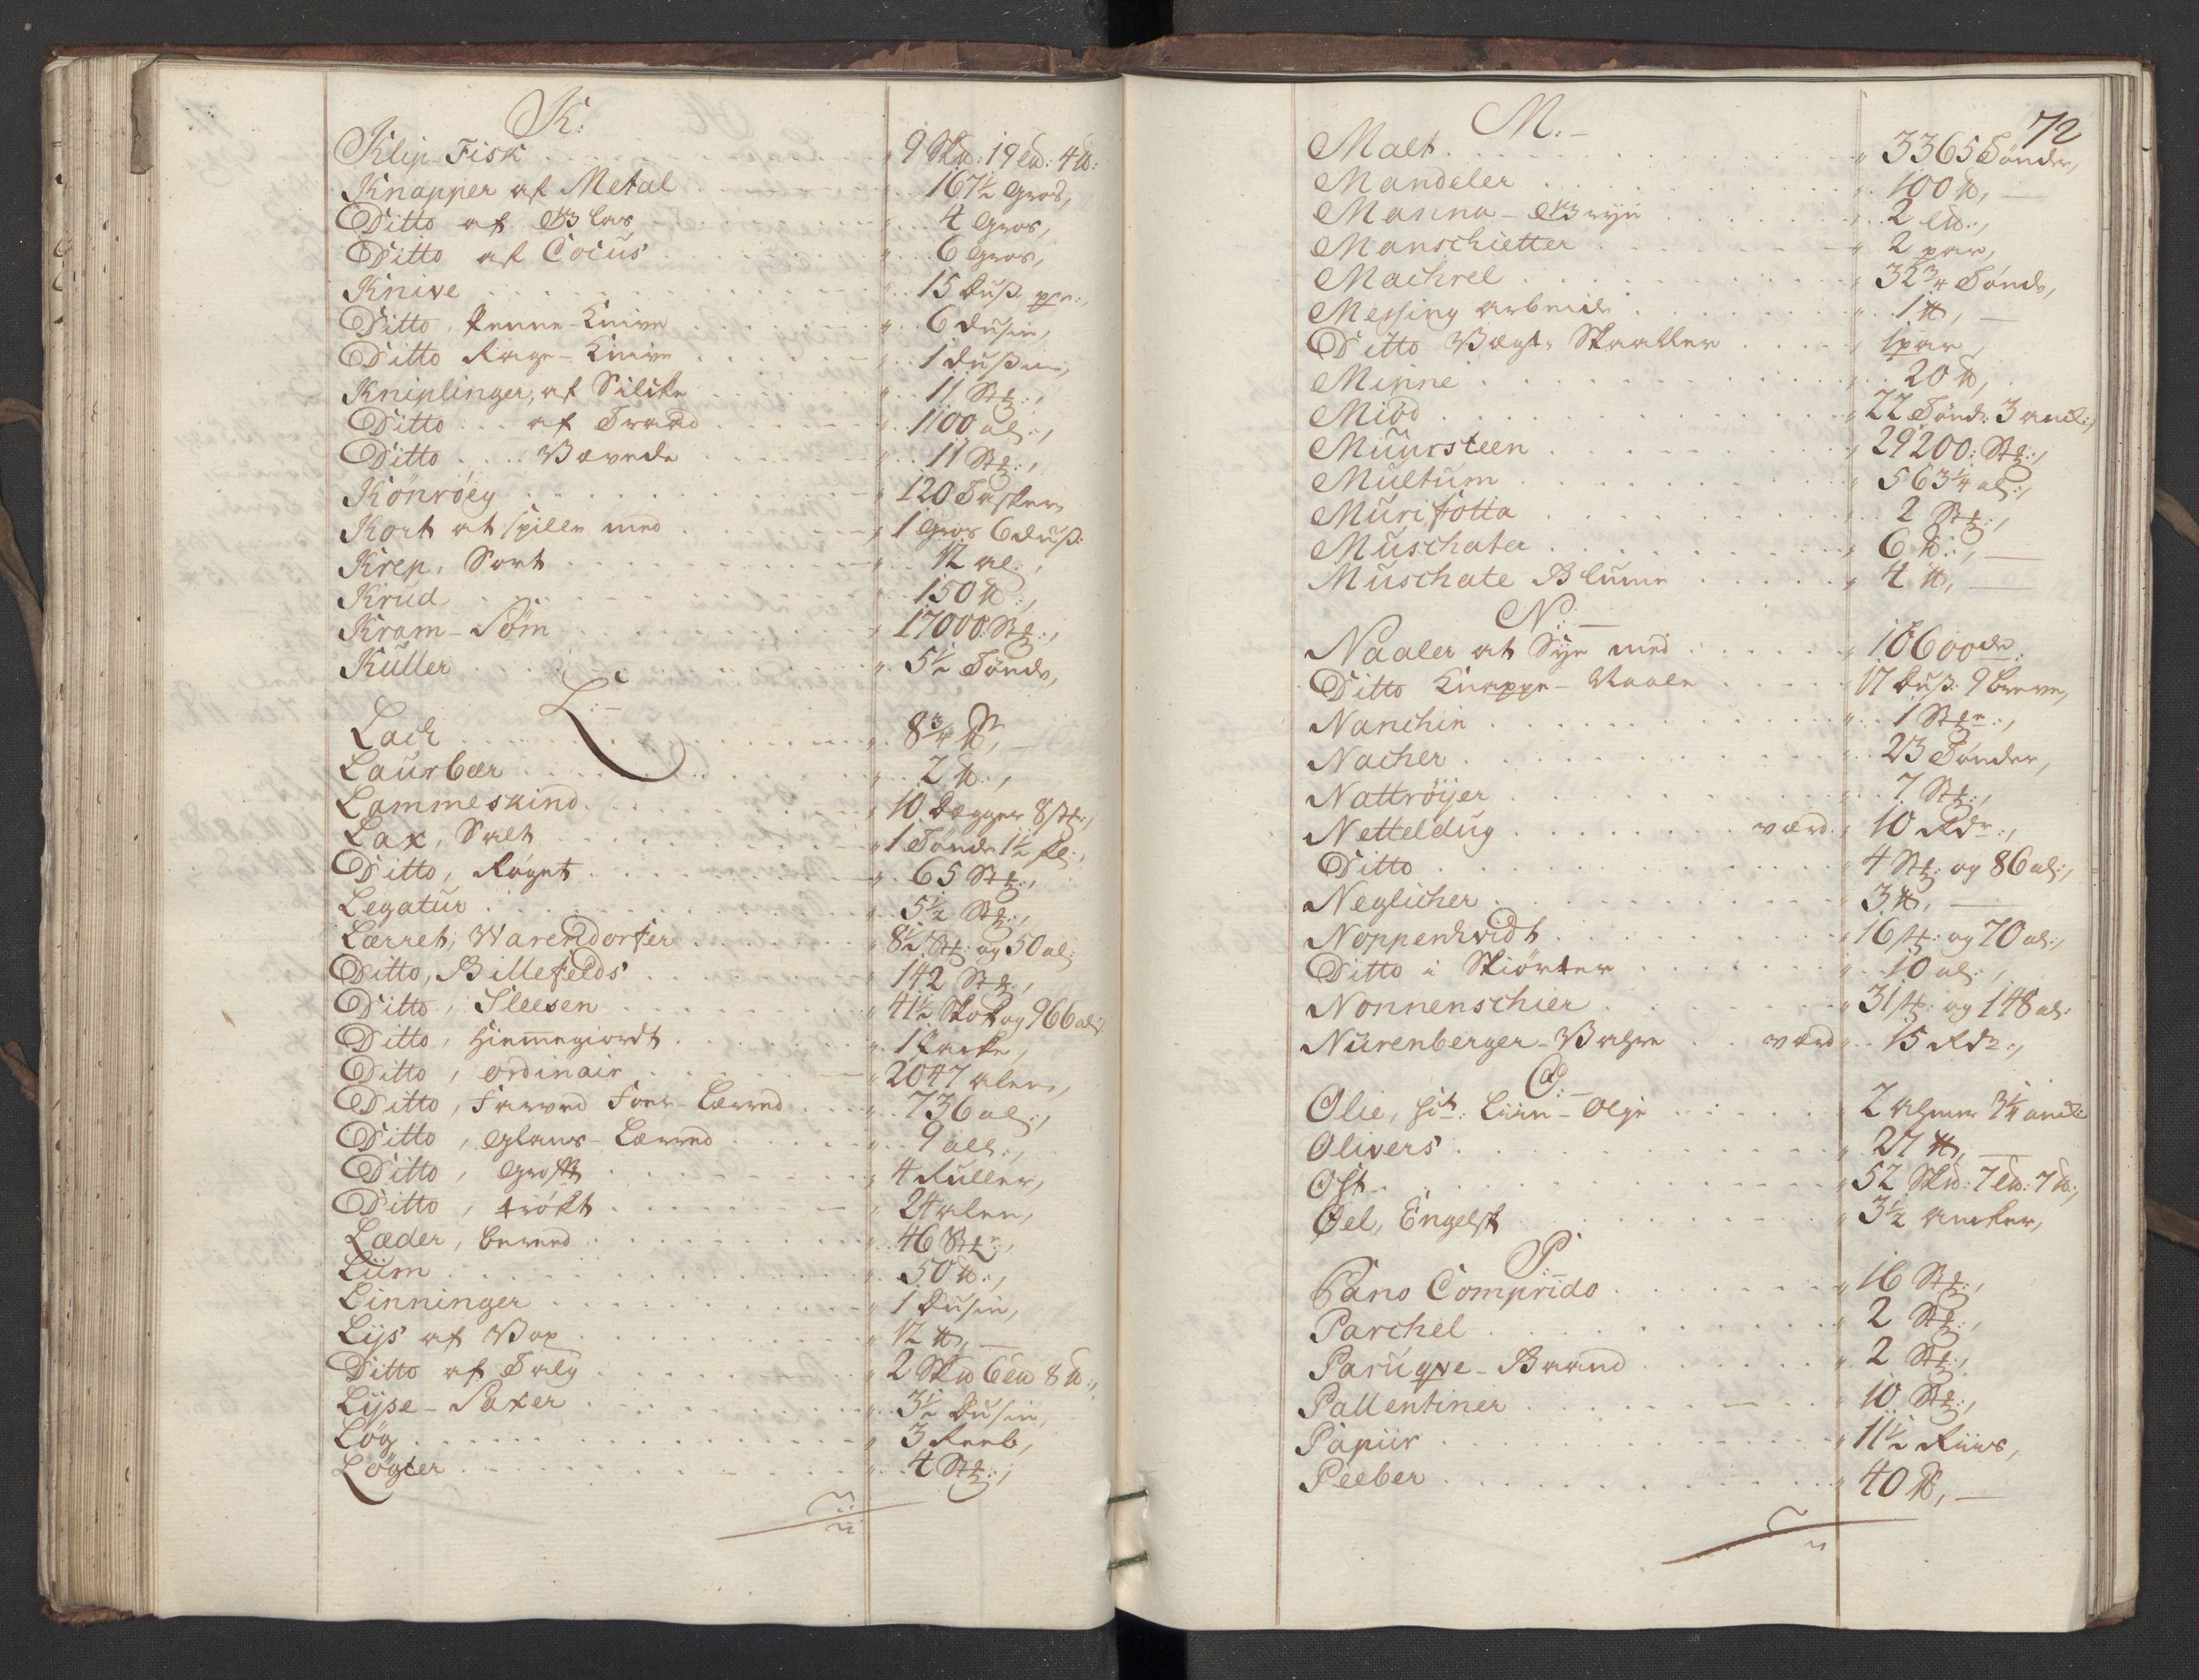 K:
Klip-Fisk 9 Sk℔: 19 L℔: 4 ℔:
Knapper af Metal 167½ Gros,
Ditto af Blas 4 Gros,
Ditto af Cocus 6 Gros,
Knive 15 Duß.
Ditto, Penne-Knive 6 Dusin,
Ditto Rage-Knive 1 Dußin,
Kniplinger, af Silcke 11 Stk:,
Ditto af Traad 1100 al:,
Ditto Vævede 11 Stk:,
Kønrøeg 120 Tasker
Kort at spille med 1 Gros 6 Duß:
Krep, Sort 12 al:,
Krud 150 ℔:,
Kram-Søm 17000 Stk:,
Kuller 5½ Tønde,
L:
Lack 8¾ ℔,
Laurbær 2 ℔:,
Lammeskind 10 Degger 8 stk:,
Lax, Salt 1 Tønde 1½ fl:,
Ditto, Røget 65 Stk:,
Legatur 5½ Stk:,
Lærret, Warendorfer 8½ Stk: og 50 al:
Ditto, Billefelds 142 Stk:,
Ditto, Sleesen 41½ Skok og 966 al:
Ditto, Hiemmegiordt 1 Packe,
Ditto, ordinair 2047 alen,
Ditto, Farved Foer-Lærred 736 al:,
Ditto, Glans-Lærred 9 all:,
Ditto, Groft 4 Ruller,
Ditto, trökt 24 alen,
Læder, bereed 46 Stkr:,
Liim 50 ℔:,
Linninger 1 Dusin,
Lys af Vox 12 ℔,
Ditto af Talg 2 Sk℔ 6 L℔ 8 ℔:,
Lyse-Saxer 3½ Dusin,
Løg 3 Reeb,
Løgter 4 Stk:,
72
M:
Malt 3365 Tønder,
Mandeler 100 ℔,
Manna-Gryn 2 L℔:,
Manschietter 2 par,
Machrel 32¾ Tønde,
Messing Arbeide 1 ℔,
Ditto Vægt-Skaaller 1 par,
Minne 20 ℔,
Miød 22 Tønd: 3 anck:,
Muursteen 29200: Stk:,
Multum 563¼ al:,
Murifotta 2 Stk:,
Muschater 6 ℔:,
Muschate Blume 4 ℔,
N:
Naaler at Sye med 10600de
Ditto Knappe-Naale 17 Duß: 9 breve,
Nanchin 1 Stkr:,
Nacher 23 Tønder,
Nattrøyer 7 Stk:,
Netteldug værd 10 Rdr:,
Ditto 4 Stk: og 86 al:,
Neglicher 3 ℔,
Noppenhvidt 16 stk: og 70 al:,
Ditto i Skiørter 10 al:,
Nonnenschier 31 stk: og 148 al:
Nürenberger-Vahre værd 15 Rdr:,
O:
Olie, sit: Liin-Olje 2 Ahmer 3¼ anck:
Olivers 27 ℔,
Ost 52 Sk℔: 7 L℔: 7 ℔:,
Øel, Engelsk 3½ Ancker,
P:
Pano Comprido 16 Stk:,
Parchel 2 Stk:,
Paruqve-Baand 2 Stk:,
Pallentiner 10 Stk:,
Papiir 11½ Riis,
Peeber 40 ℔,